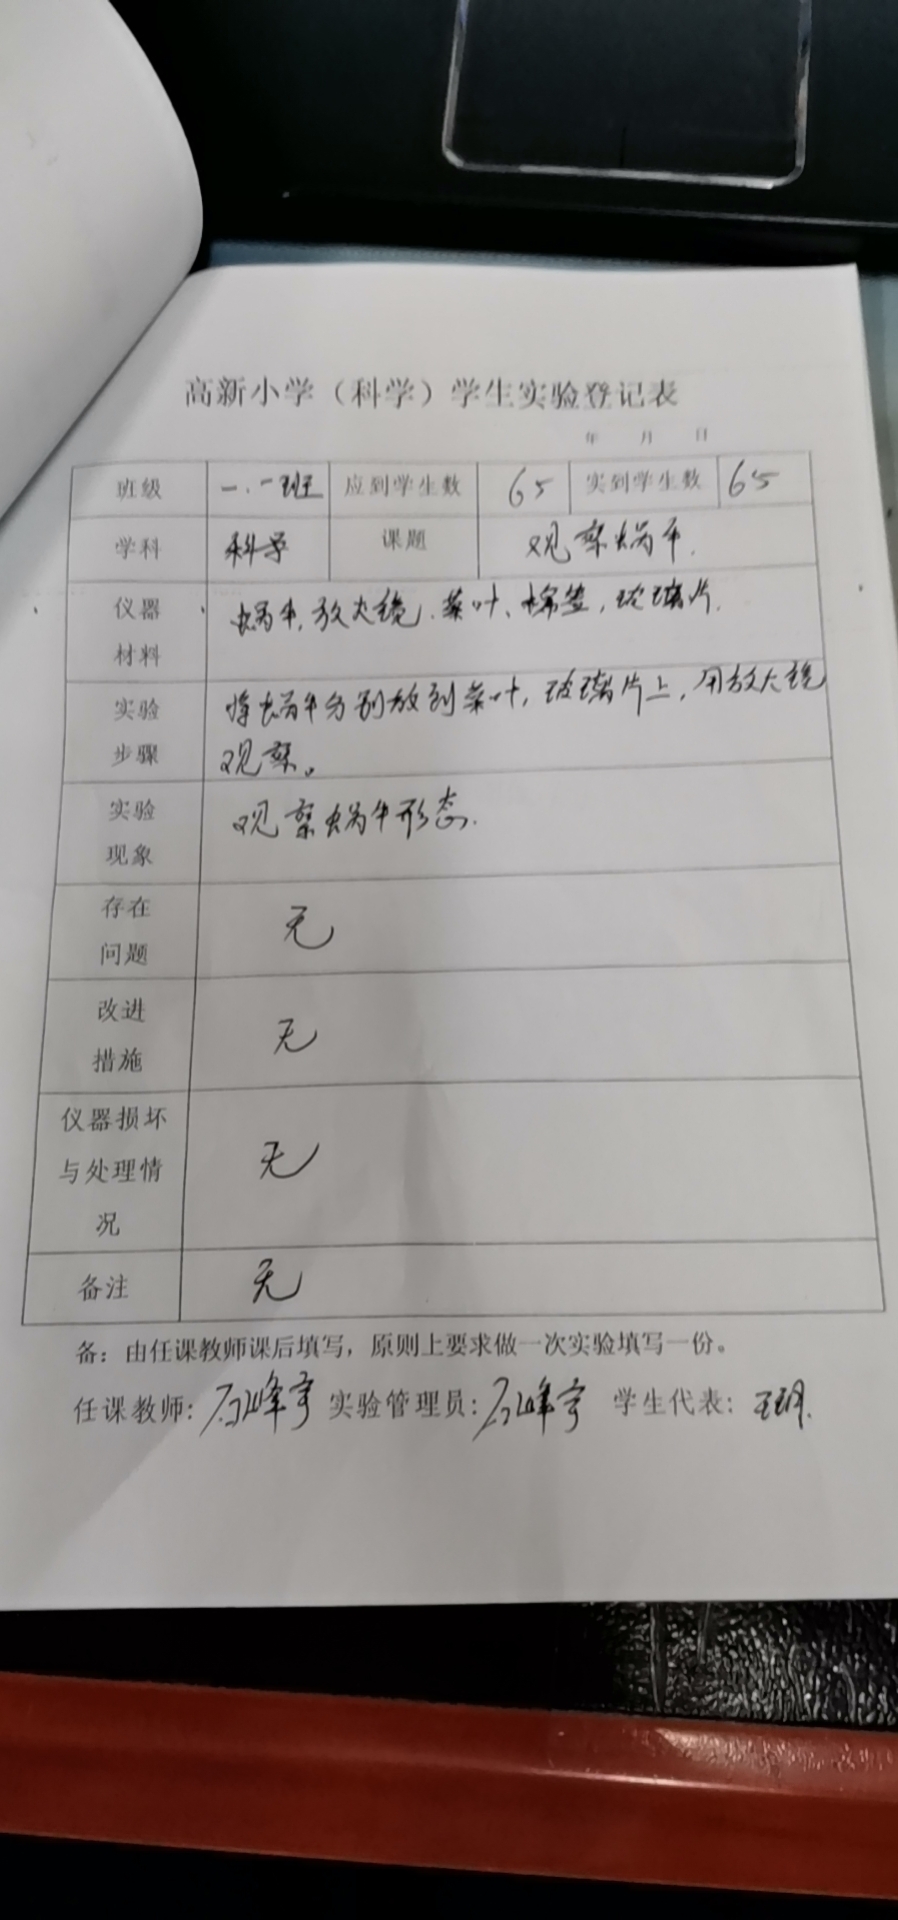 高新小学（科学）学生实验登记表
年 月 日
班级 一.一班 应到学生数 65 实到学生数 65
学科 科学 课题 观察蜗牛.
仪器 蜗牛,放大镜.菜叶、棉签,玻璃片.
材料
实验 将蜗牛分别放到菜叶,玻璃片上,用放大镜
步骤 观察。
实验 观察蜗牛形态.
现象
存在 无
问题
改进 无
措施
仪器损坏
与处理情 无
况
备注 无
备：由任课教师课后填写，原则上要求做一次实验填写一份。
任课教师: 实验管理员: 学生代表: